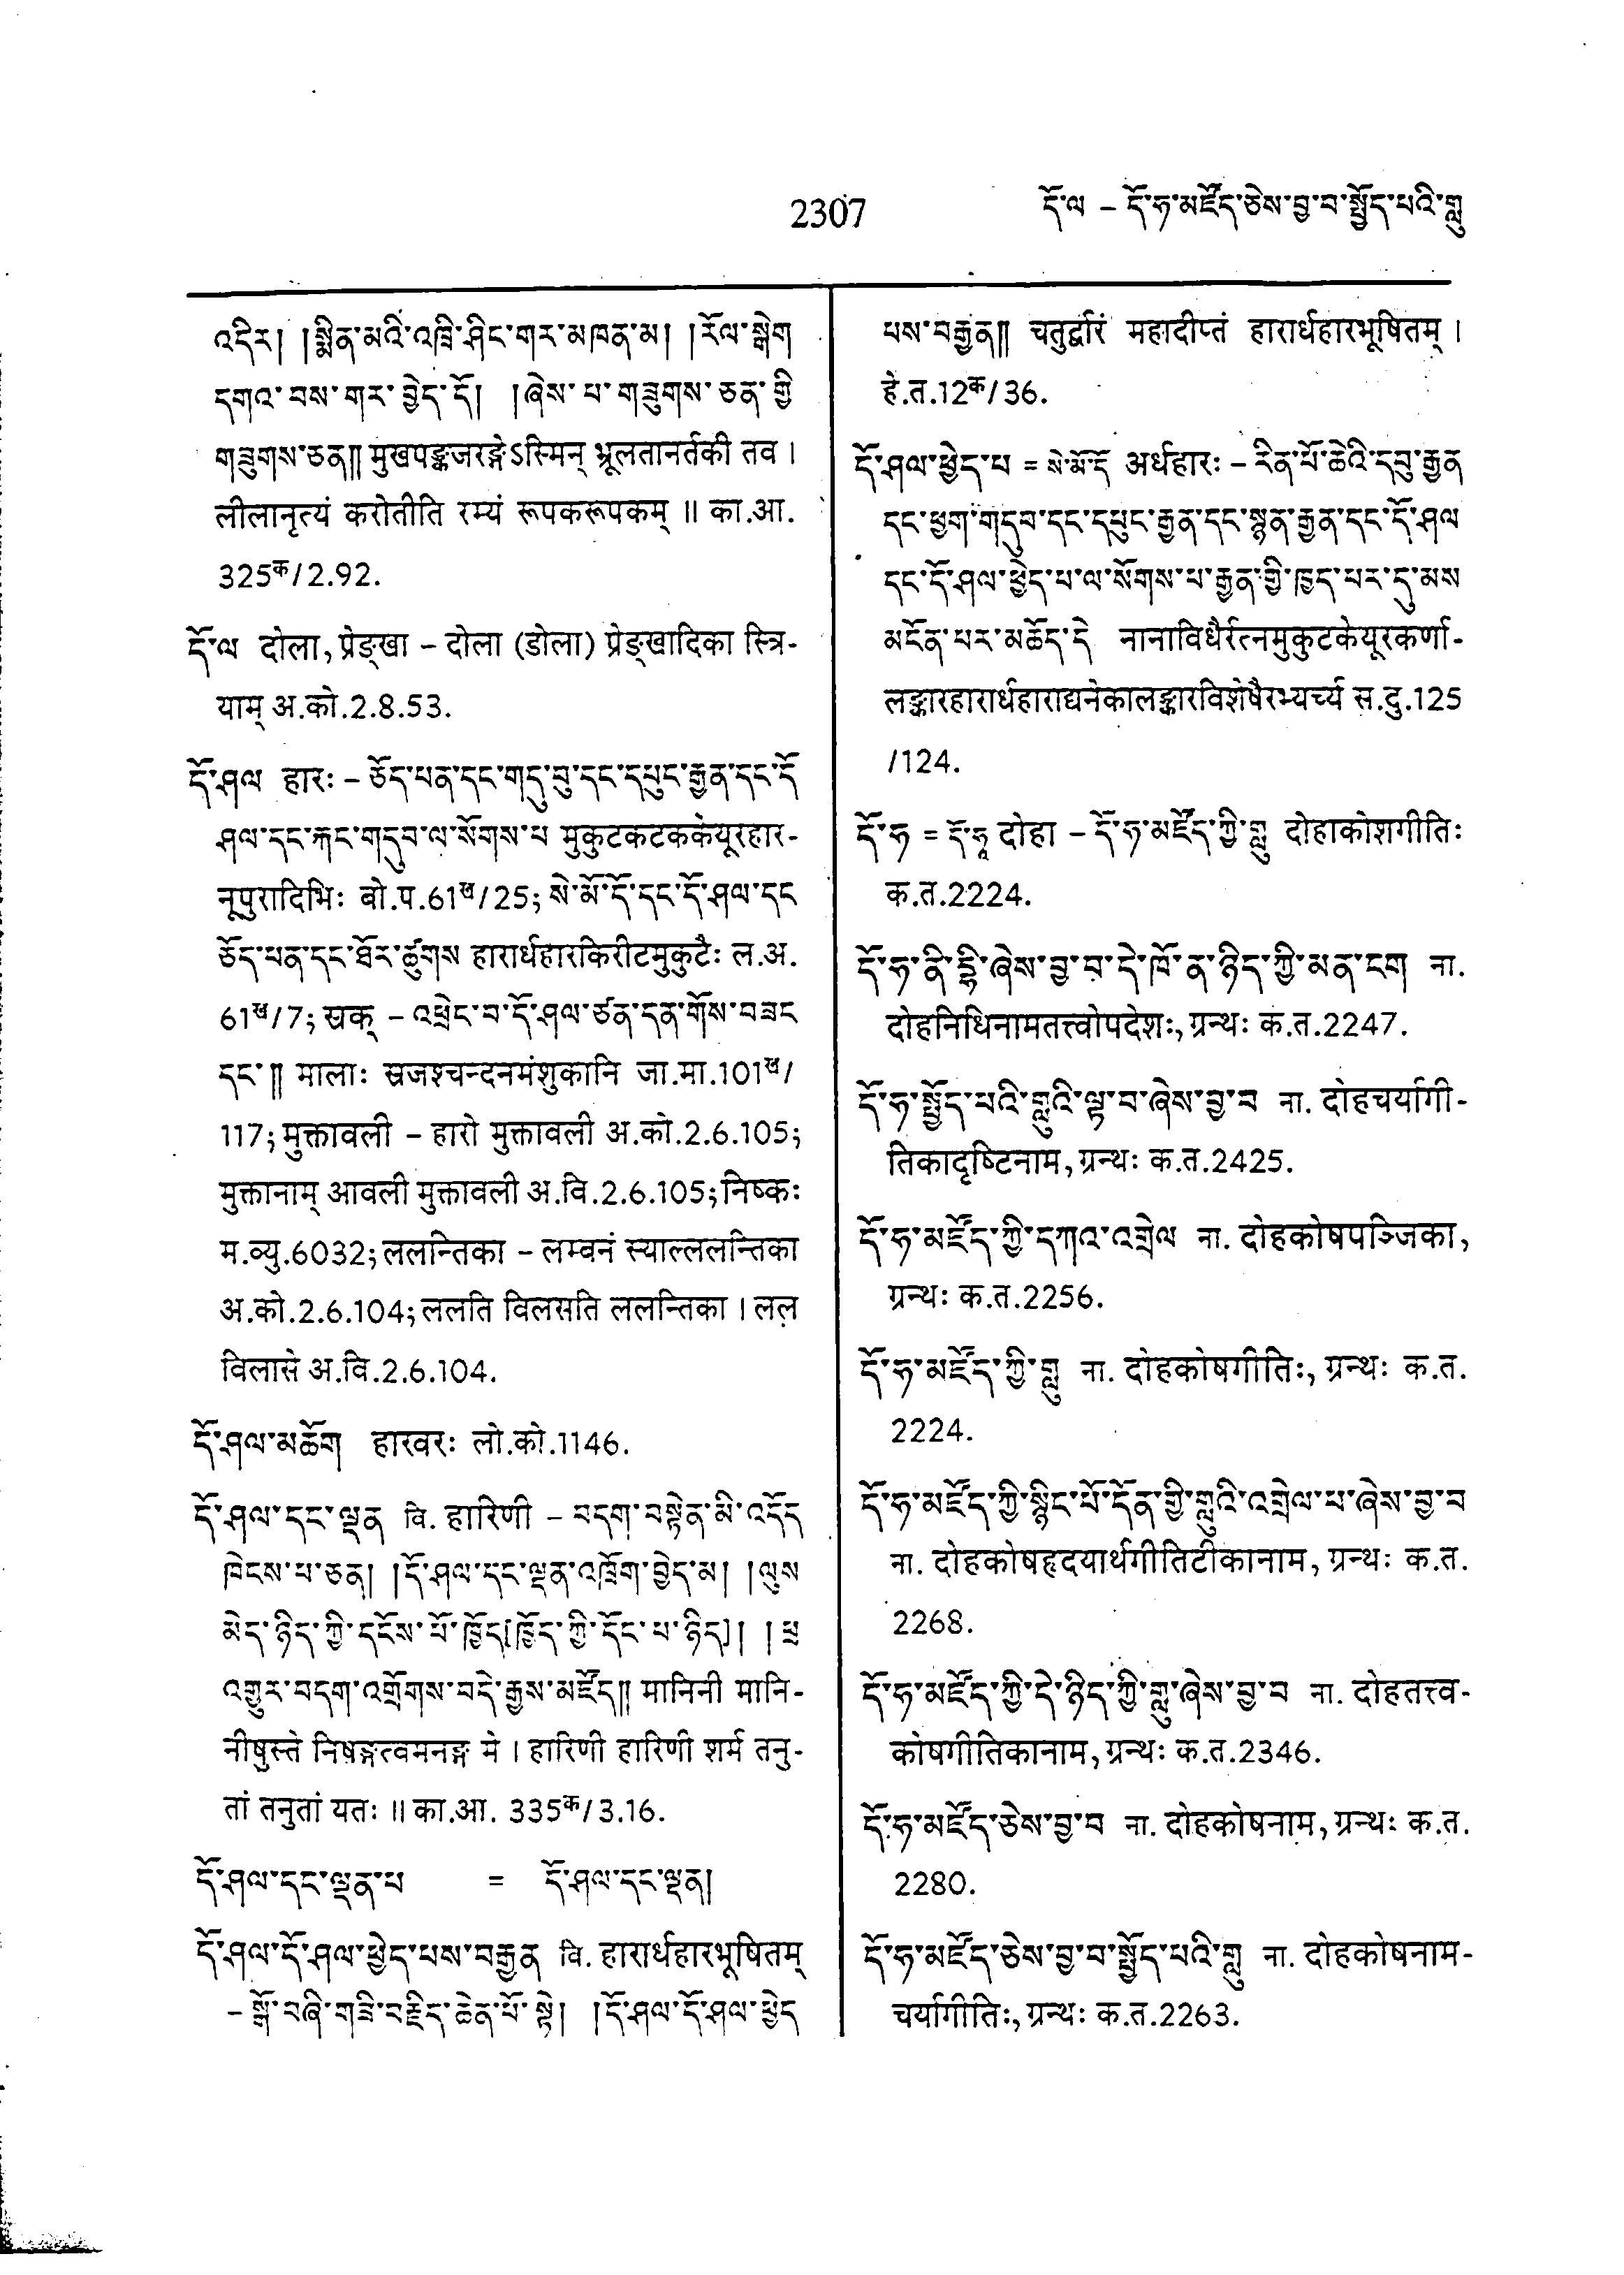 2307
དོ་ལ – དོ་ཧ་མཛོད་ཅེས་བྱ་བ་སྤྱོད་པའི་གླུ
འདིར། །སྨིན་མའི་འཁྲི་ཤིང་གར་མཁན་མ། །རོལ་སྒེག
དགའ་བས་གར་བྱེད་དོ། །ཞེས་པ་གཟུགས་ཅན་གྱི
གཟུགས་ཅན།། मुखपङ्कजरङ्गेऽस्मिन् भ्रूलतानर्तकी तव ।
लीलानृत्यं करोतीति रम्यं रूपकरूपकम् ॥ का.आ.
325क/2.92.
དོ་ལ दोला, प्रेङ्खा – दोला (डोला) प्रेङ्खादिका स्त्रि-
याम् अ.को.2.8.53.
དོ་ཤལ हारः – ཅོད་པན་དང་གདུ་བུ་དང་དཔུང་རྒྱན་དང་དོ
ཤལ་དང་རྐང་གདུབ་ལ་སོགས་པ मुकुटकटककेयूरहार-
नूपुरादिभिः बो.प.61ख/25; སེ་མོ་དོ་དང་དོ་ཤལ་དང
ཅོད་པན་དང་ཐོར་ཚུགས हारार्धहारकिरीटमुकुटैः ल.अ.
61ख/7; स्रक् – འཕྲེང་བ་དོ་ཤལ་ཙན་དན་གོས་བཟང
དང་།། मालाः स्रजश्चन्दनमंशुकानि जा.मा.101ख/
117; मुक्तावली – हारो मुक्तावली अ.को.2.6.105;
मुक्तानाम् आवली मुक्तावली अ.वि.2.6.105; निष्कः
म.व्यु.6032; ललन्तिका – लम्वनं स्याल्ललन्तिका
अ.को.2.6.104; ललति विलसति ललन्तिका । लल
विलासे अ.वि.2.6.104.
དོ་ཤལ་མཆོག हारवरः लो.को.1146.
དོ་ཤལ་དང་ལྡན वि. हारिणी – བདག་བསྟེན་མི་འདོད
ཁེངས་པ་ཅན། །དོ་ཤལ་དང་ལྡན་འཕྲོག་བྱེད་མ། །ལུས
མེད་ཉིད་ཀྱི་དངོས་པོ་ཁྱོད[ཁྱོད་ཀྱི་དོང་པ་ཉིད]། །ཕྲ
འགྱུར་བདག་འགྲོགས་བདེ་རྒྱས་མཛོད།། मानिनी मानि-
नीषुस्ते निषङ्गत्वमनङ्ग मे । हारिणी हारिणी शर्म तनु-
तां तनुतां यतः ॥ का.आ. 335क/3.16.
དོ་ཤལ་དང་ལྡན་པ = དོ་ཤལ་དང་ལྡན།
དོ་ཤལ་དོ་ཤལ་ཕྱེད་པས་བརྒྱན वि. हारार्धहारभूषितम्
– སྒོ་བཞི་གཟི་བརྗིད་ཆེན་པོ་སྟེ། །དོ་ཤལ་དོ་ཤལ་ཕྱེད
པས་བརྒྱན།། चतुर्द्वारं महादीप्तं हारार्धहारभूषितम् ।
हे.त.12क/36.
དོ་ཤལ་ཕྱེད་པ = སེ་མོ་དོ अर्धहारः – རིན་པོ་ཆེའི་དབུ་རྒྱན
དང་ཕྱག་གདུབ་དང་དཔུང་རྒྱན་དང་སྙན་རྒྱན་དང་དོ་ཤལ
དང་དོ་ཤལ་ཕྱེད་པ་ལ་སོགས་པ་རྒྱན་གྱི་ཁྱད་པར་དུ་མས
མངོན་པར་མཆོད་དེ नानाविधैर्रत्नमुकुटकेयूरकर्णा-
लङ्कारहारार्धहाराद्यनेकालङ्कारविशेषैरभ्यर्च्य स.दु.125
/124.
དོ་ཧ = དོ་ཧཱ दोहा – དོ་ཧ་མཛོད་ཀྱི་གླུ दोहाकोशगीतिः
क.त.2224.
དོ་ཧ་ནི་དྷི་ཞེས་བྱ་བ་དེ་ཁོ་ན་ཉིད་ཀྱི་མན་ངག ना.
दोहनिधिनामतत्त्वोपदेशः, ग्रन्थः क.त.2247.
དོ་ཧ་སྤྱོད་པའི་གླུའི་ལྟ་བ་ཞེས་བྱ་བ ना. दोहचर्यागी-
तिकादृष्टिनाम, ग्रन्थः क.त.2425.
དོ་ཧ་མཛོད་ཀྱི་དཀའ་འགྲེལ ना. दोहकोषपञ्जिका,
ग्रन्थः क.त.2256.
དོ་ཧ་མཛོད་ཀྱི་གླུ ना. दोहकोषगीतिः, ग्रन्थः क.त.
2224.
དོ་ཧ་མཛོད་ཀྱི་སྙིང་པོ་དོན་གྱི་གླུའི་འགྲེལ་པ་ཞེས་བྱ་བ
ना. दोहकोषहृदयार्थगीतिटीकानाम, ग्रन्थः क.त.
2268.
དོ་ཧ་མཛོད་ཀྱི་དེ་ཉིད་ཀྱི་གླུ་ཞེས་བྱ་བ ना. दोहतत्त्व-
कोषगीतिकानाम, ग्रन्थः क.त.2346.
དོ་ཧ་མཛོད་ཅེས་བྱ་བ ना. दोहकोषनाम, ग्रन्थः क.त.
2280.
དོ་ཧ་མཛོད་ཅེས་བྱ་བ་སྤྱོད་པའི་གླུ ना. दोहकोषनाम-
चर्यागीतिः, ग्रन्थः क.त.2263.